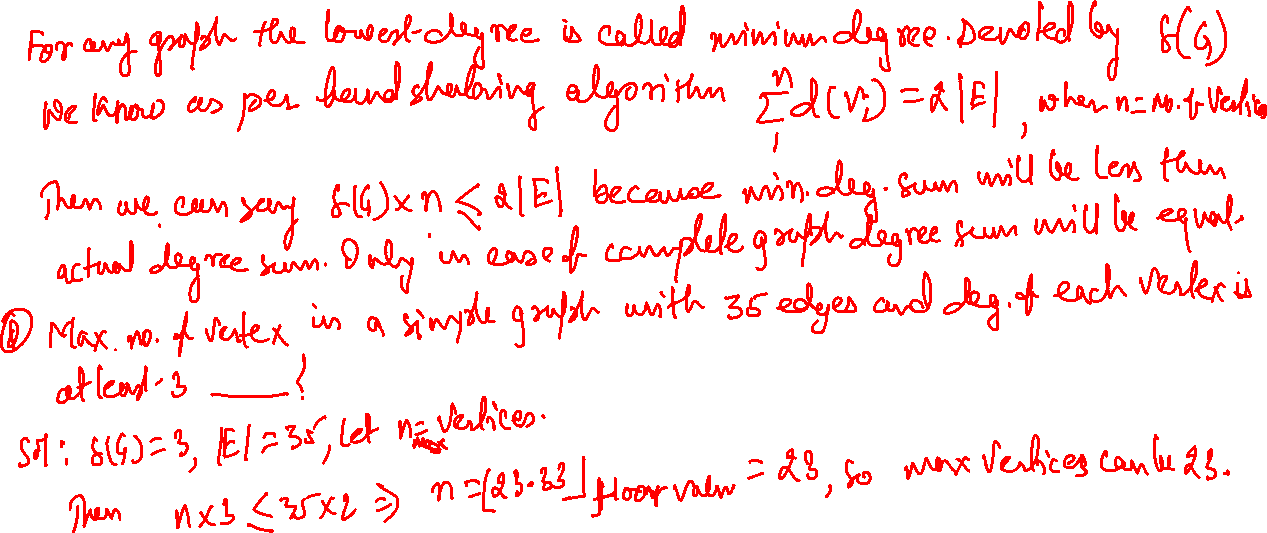 For any graph the lowest degree is called minimum degree. Denoted by δ(G)
We know as per hand shaking algorithm n∑1 d(Vi) = 2|E| , when n = no. of Vertices
Then we can say δ(G) x n ≤ 2|E| because min. deg. sum will be less then
actual degree sum. Only in case of complete graph degree sum will be equal.
Q Max. no. of vertex in a simple graph with 35 edges and deg. of each vertex is
atleast 3 ____?
Sol: δ(G) = 3, |E| = 35, Let n = max vertices.
Then n x 3 ≤ 35 x 2 ⇒ n = ⌊23.33⌋ floor value = 23, so max vertices can be 23.